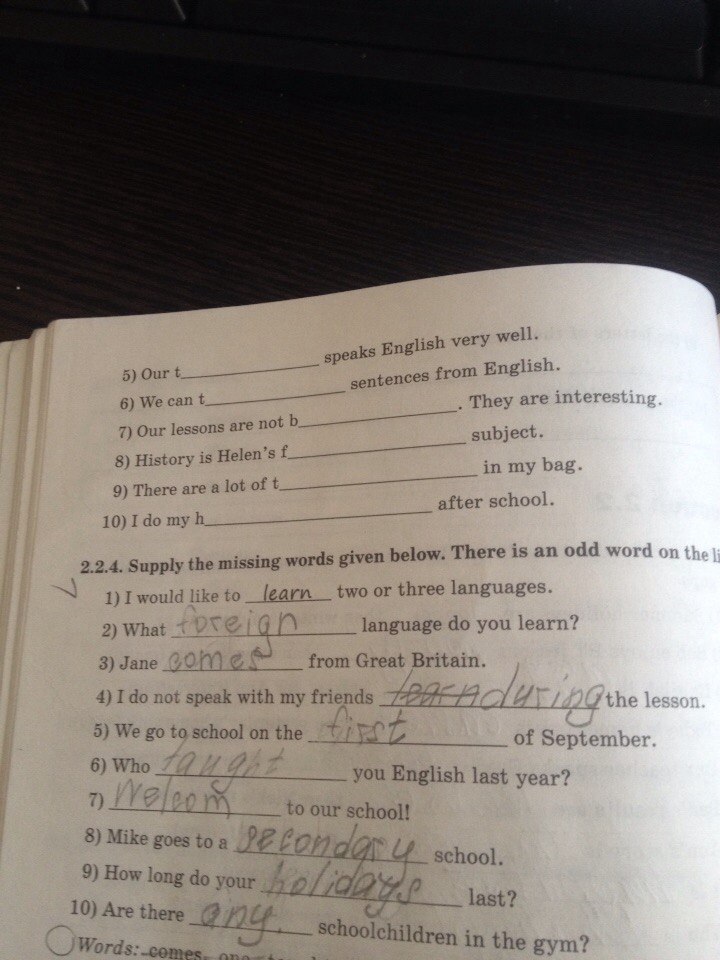 5) Our t__________ speaks English very well.
6) We can t__________ sentences from English.
7) Our lessons are not b__________. They are interesting.
8) History is Helen's f__________ subject.
9) There are a lot of t__________ in my bag.
10) I do my h__________ after school.
2.2.4. Supply the missing words given below. There is an odd word on the li
1) I would like to learn two or three languages.
2) What foreign language do you learn?
3) Jane comes from Great Britain.
4) I do not speak with my friends learn during the lesson.
5) We go to school on the first of September.
6) Who taught you English last year?
7) Welcom to our school!
8) Mike goes to a secondary school.
9) How long do your holidays last?
10) Are there any schoolchildren in the gym?
Words: comes,